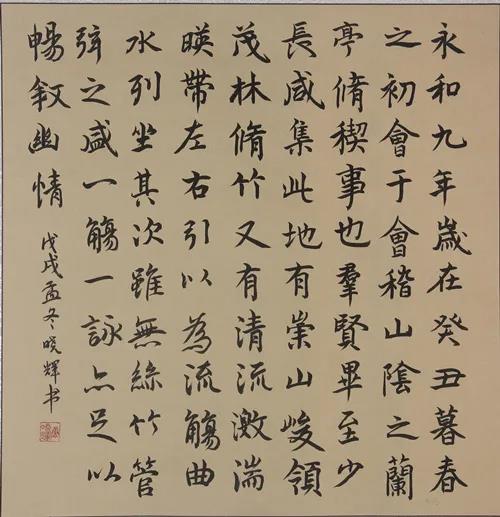 永和九年歲在癸丑暮春
之初會于會稽山陰之蘭
亭脩稧事也羣賢畢至少
長咸集此地有崇山峻領
茂林脩竹又有清流激湍
暎帶左右引以為流觴曲
水列坐其次雖無絲竹管
弦之盛一觴一詠亦足以
暢敘幽情
戊戌孟冬晓輝书